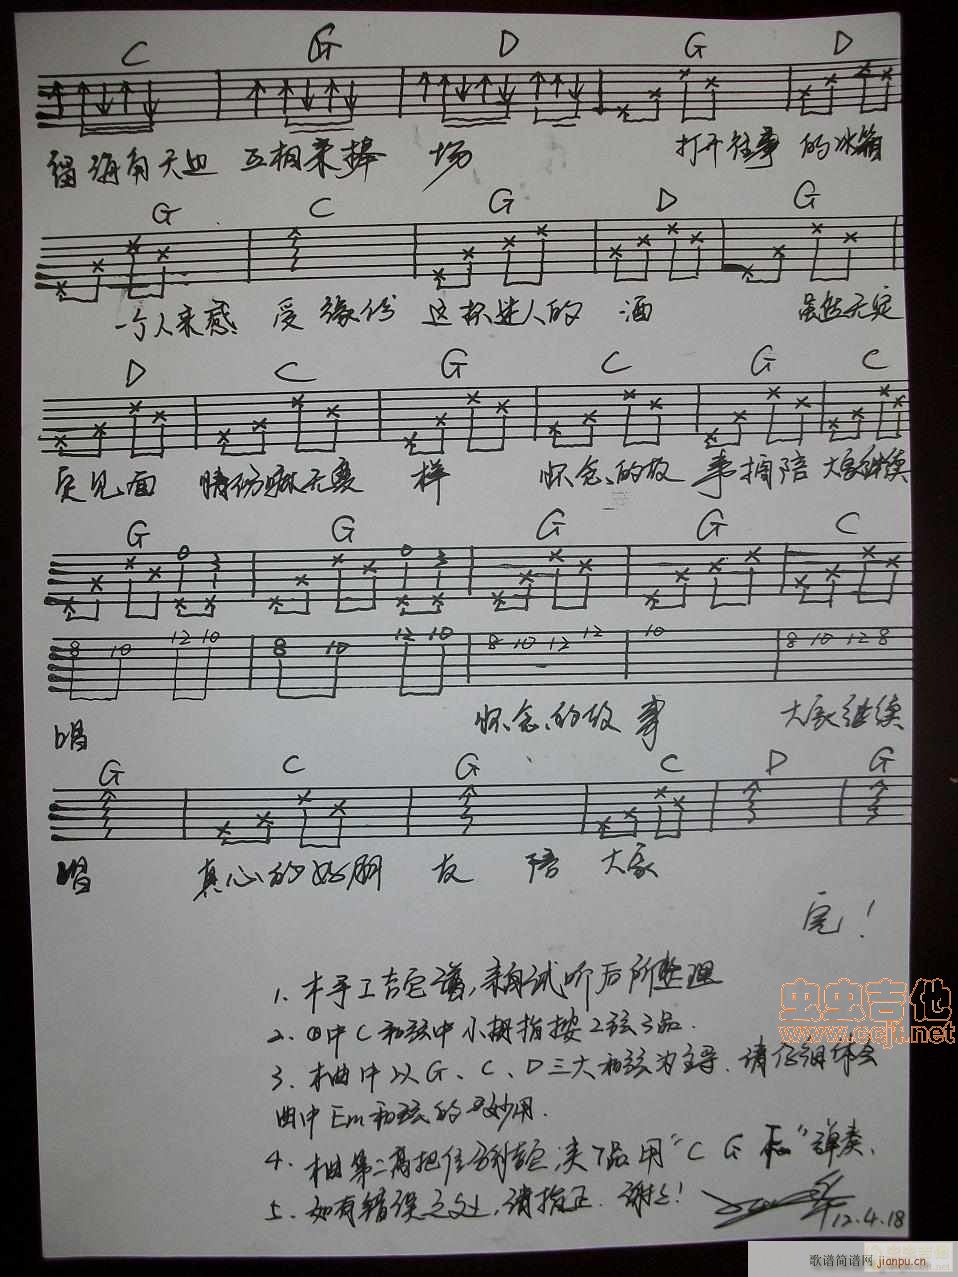 C G D G D
海角天边 互相来捧 场 打开往事 的冰箱
G C G D G
一个人来感 受 缘份 这杯迷人的 酒 虽然无定
D C G C G C
见面 情份 无 样 怀念的故 事 陪 大家继续
G G G G C
8 10 12 10 8 10 12 10 8 10 12 12 10 8 10 12 8
唱 怀念的故 事 大家继续
G C G C D G
唱 真心的好朋 友 陪 大家
完!
1. 本手工吉它谱,亲自试听后所整理
2. ①中C和弦中小拇指按2弦3品.
3. 本曲中以G、C、D三大和弦为主导.请仔细体会
曲中Em和弦的巧妙用.
4. 本曲第二高把位 夹7品用"C G Em"弹奏.
5. 如有错误之处,请指正.谢谢!
12.4.18
虫虫吉他
www.ccjt.net
歌谱简谱网 jianpu.cn